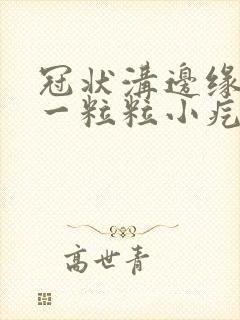 冠状溝邊缘
一粒粒小疙
高世青